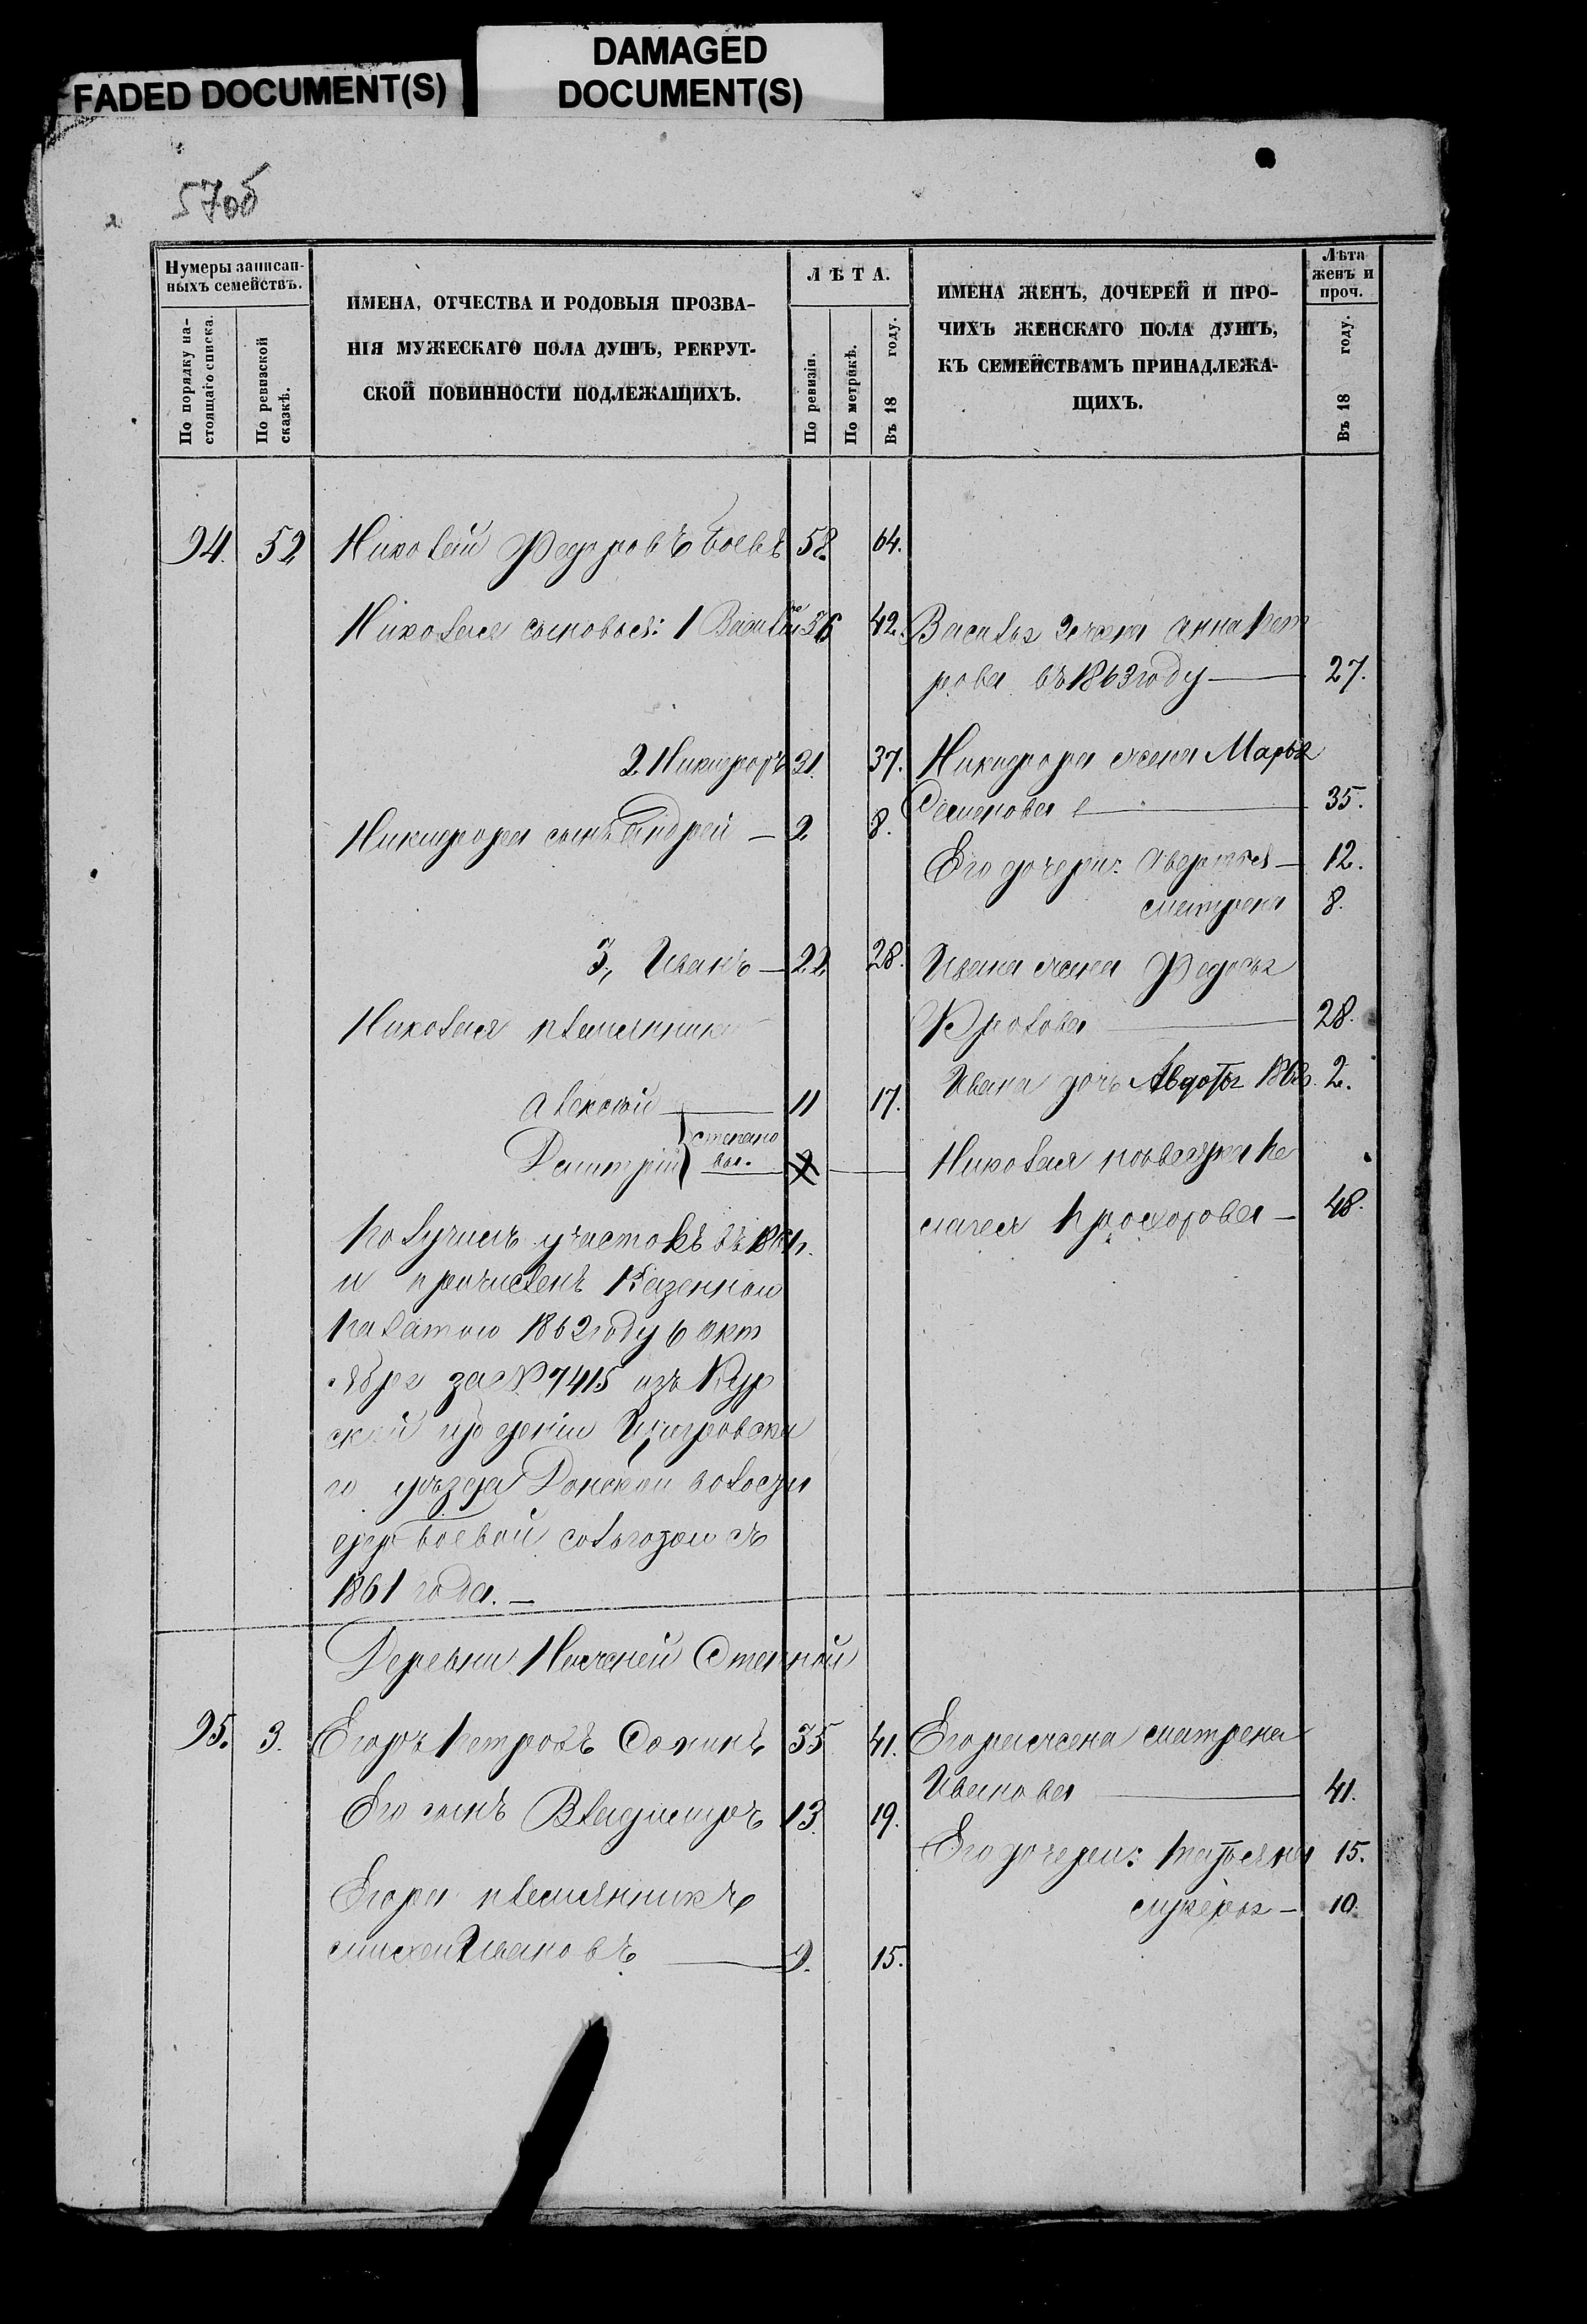 FADED DOCUMENT(S)
DAMAGED
DOCUMENT(S)
57об
Нумеры записан-
ныхъ семействъ.
По порядку на-
стоящаго списка.
По ревизской
сказкѣ.
ИМЕНА, ОТЧЕСТВА И РОДОВЫЯ ПРОЗВА-
НІЯ МУЖЕСКАГО ПОЛА ДУШЪ, РЕКРУТ-
СКОЙ ПОВИННОСТИ ПОДЛЕЖАЩИХЪ.
ЛѢТА.
По ревизіи.
По метрикѣ.
Въ 18 году.
ИМЕНА ЖЕНЪ, ДОЧЕРЕЙ И ПРО-
ЧИХЪ ЖЕНСКАГО ПОЛА ДУШЪ,
КЪ СЕМЕЙСТВАМЪ ПРИНАДЛЕЖА-
ЩИХЪ.
Лѣта
женъ и
проч.
Въ 18 году.
94. 52 Николай Федоровъ Боевъ 58 64.
Николая сыновья: 1 Василій 36 42. Василья жена Анна Пет
рова въ 1863 году — 27.
2 Никифоръ 31. 37. Никифора жена Марья
Семенова — 35.
Никифора сынъ Андрей — 2 8.
Его дочери: Авдотья — 12.
Матрена 8.
3, Иванъ — 22 28. Ивана жена Федосья
Фролова — 28.
Николая племянники
Ивана дочь Авдотья 2.
Алексѣй — 11 17.
Дмитрій Степано
вы.
Николая невестка Пе
лагея Прохорова — 48.
Получилъ участокъ въ 1861г.
и причисленъ Казенной
Палатою 1862 году 6 Окт
ября за № 7415 изъ Кур
ской губерніи Щигровска
го уѣзда Донской волости
дер Боевой со льготою съ
1861 года. —
Деревни Нижней Отепной
95. 3. Егоръ Петровъ Сопинъ 35 41. Егора жена Матрена
Иванова — 41.
Его сынъ Владиміръ 13. 19.
Его дочери: Татьяна 15.
10.
Егора племянникъ
Михей Ивановъ — 9. 15.